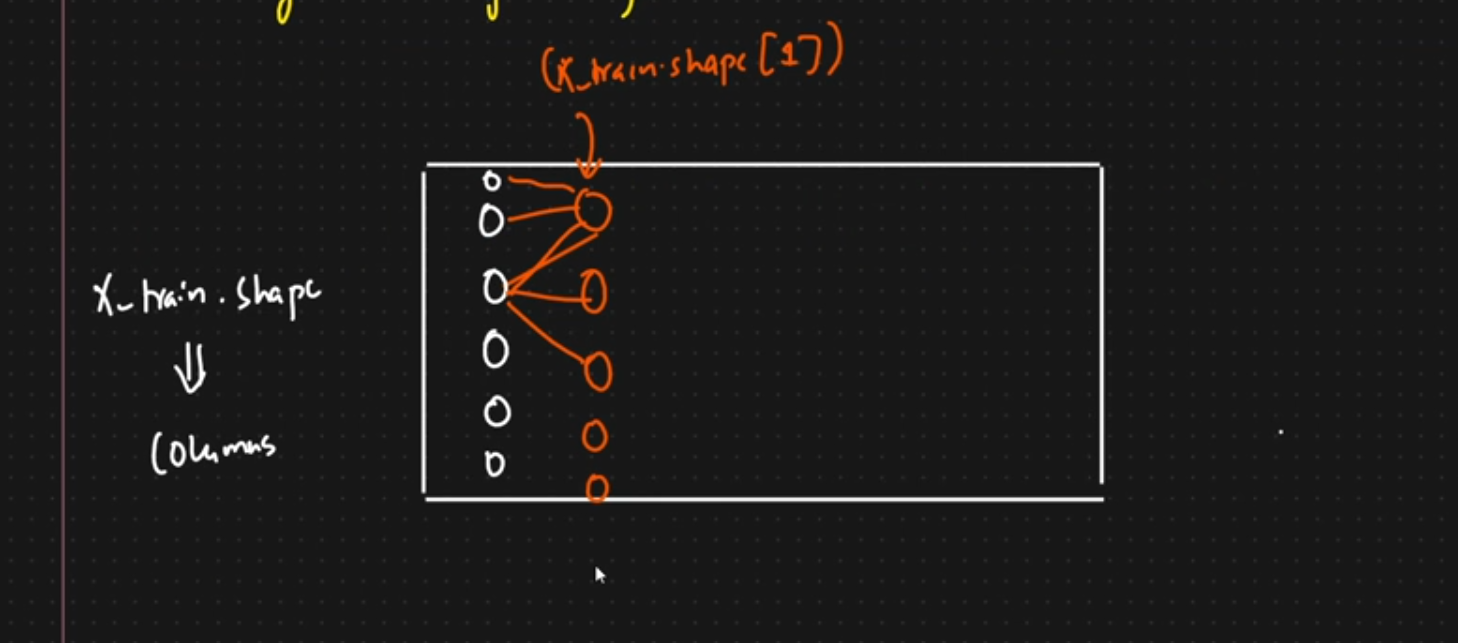 (X_train.shape[1])
X_train.shape
Columns